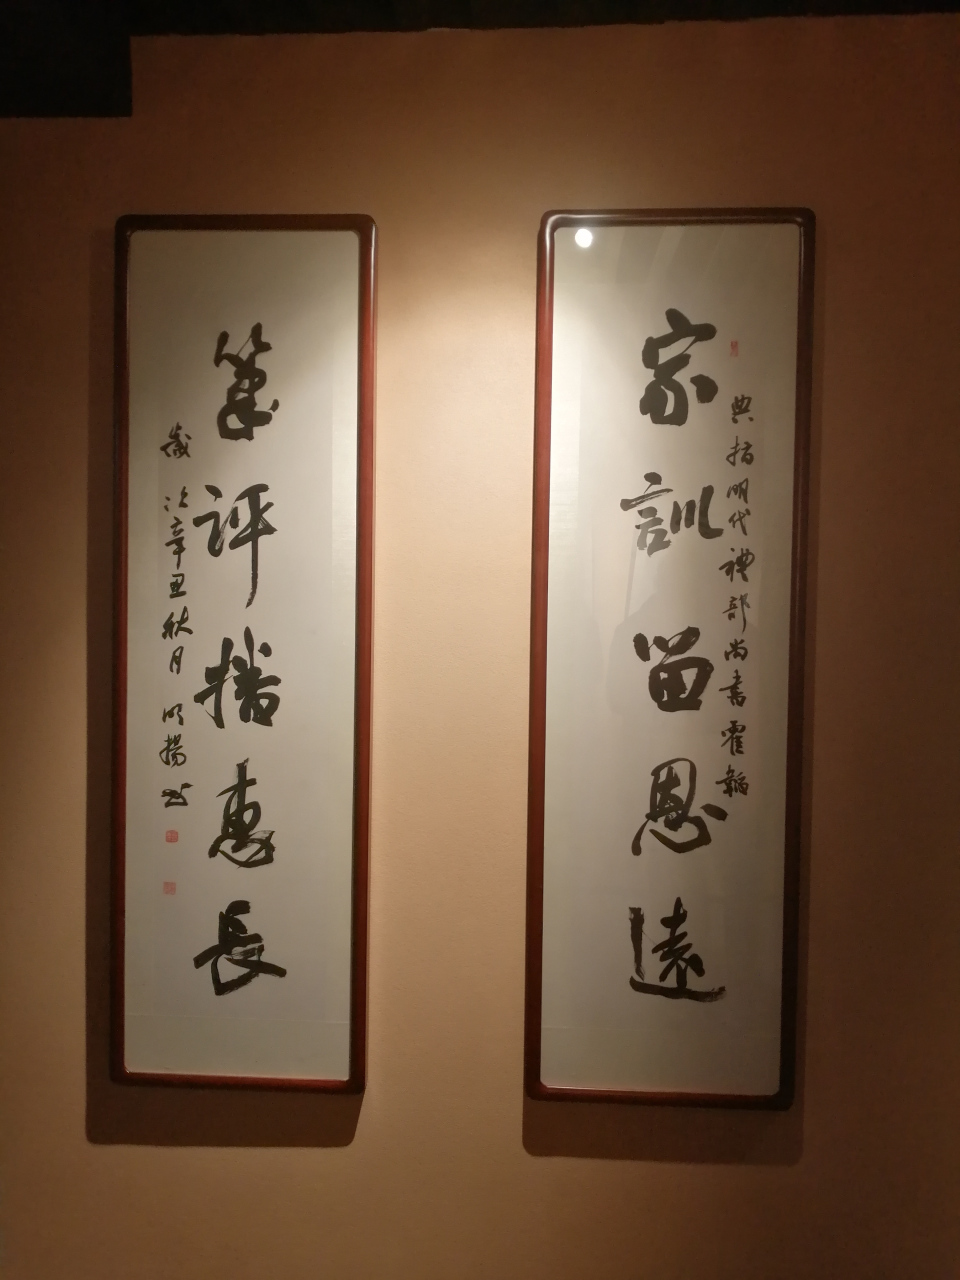 家訓留恩遠
典指明代禮部尚書霍韜
筆評播惠長
歲次辛丑秋月明揚書